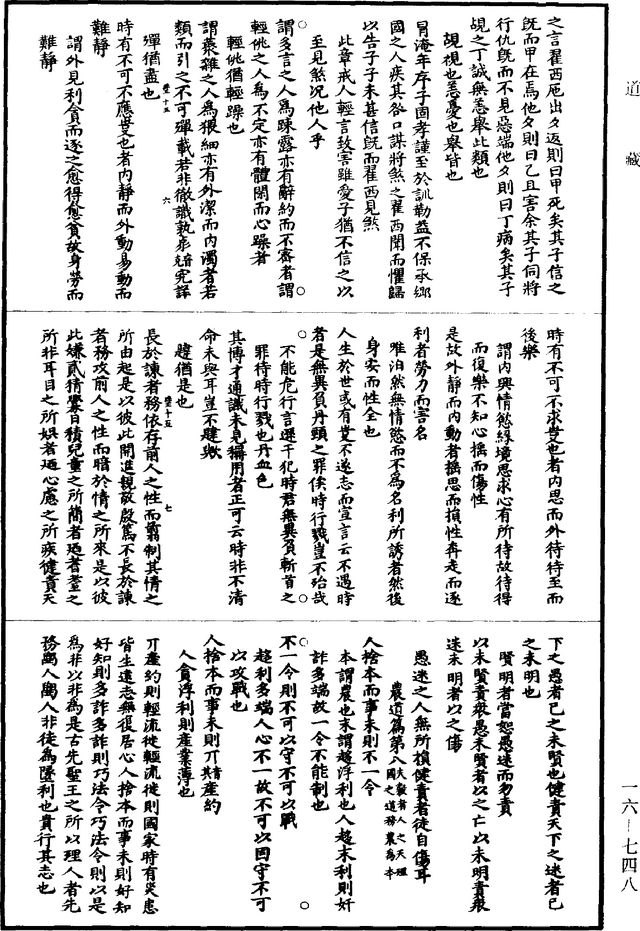 道藏
之言翟西厄出夕返則曰甲死矣其子信之
既而甲在焉他夕則曰乙且害余其子伺將
行仇既而不見惡端他夕則曰丁病矣其子
覘之丁誠無恙舉此類也
覘視也恙憂也舉皆也
冒淹年存子固孝謹至於訓勤益不保承鄉
國之人疾其咎口謀將煞之翟西聞而懼歸
以告子子未甚信既而翟西見煞
此章戒人輕言致害雖愛子猶不信之以
至見煞況他人乎
謂多言之人為踈露亦有辭約而不密者謂
輕佻之人為不定亦有體閑而心躁者
輕佻猶輕躁也
謂蘩雜之人為猥細亦有外潔而內濁者若
類而引之不可殫載若非徹識孰究詳
殫猶盡也
六
時有不可不應世也者內靜而外動易動而
難靜
謂外見利貪而逐之愈得愈貪故身勞而
難靜
時有不可不求世也者內思而外待待至而
後樂
謂內興情慾緣境思求心有所待故待得
而復樂不知心揺而傷性
是故外靜而內動者揺思而損性奔走而逐
利者勞力而害名
唯泊然無情慾而不為名利所誘者然後
身安而性全也
人生於世或有世不遂志而宣言云不遇時
者是無異負丹頸之罪俟時行戮豈不殆哉
不能危行言遜干犯時君無異負斬首之
罪待時行戮也丹血色
其博才通識未見稱用者正可云時非不清
命未與耳豈不韙歟
韙猶是也
七
長於諫者務依存前人之性而翦制其情之
所由起是以彼此開進親敬殷篤不長於諫
者務攻前人之性而暗於情之所來是以彼
此嫌貳猜釁日積兒童之所簡者迺耆耋之
所非耳目之所娛者迺心慮之所疾健責天
下之愚者已之未賢也健責天下之迷者已
之未明也
賢明者當恕愚迷而多責
以未賢責衆愚未賢者以之亡以未明責衆
迷未明者以之傷
愚迷之人無所損健責者徒自傷耳
農道篇第八夫穀者人之天理國之道務農為本
人捨本而事末則不一令
本謂農也末謂趍浮利也人趍末利則奸
詐多端故一令不能制也
不一令則不可以守不可以戰
趍利多端人心不一故不可以固守不可
以攻戰也
人捨本而事末則丌其產約
人貪浮利則產業薄也
丌產約則輕流徙輕流徙則國家時有災患
皆生遠志無復居心人捨本而事末則好知
好知則多詐多詐則巧法令巧法令則以是
為非以非為是古先聖王之所以理人者先
務農人農人非徒為墜利也貴行其志也
一六—七四八